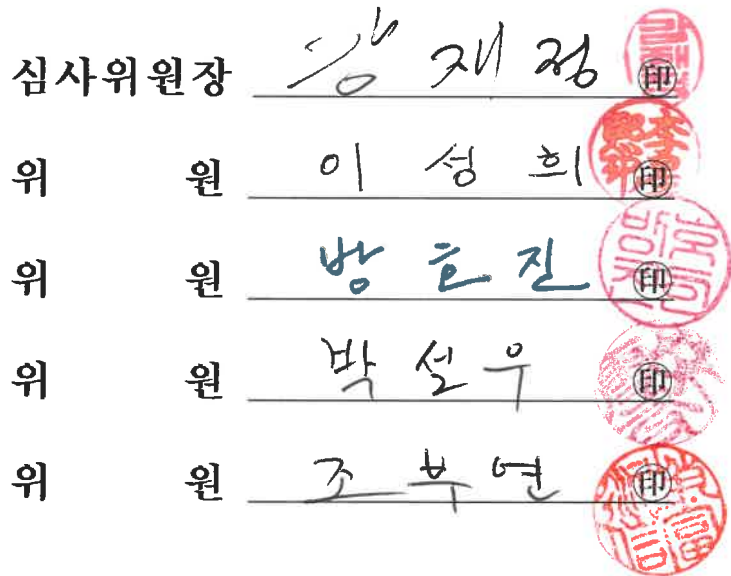 심사위원장 재정 ㊞
위 원 이 성 희 ㊞
위 원 방 호 진 ㊞
위 원 박 설 우 ㊞
위 원 조 부 연 ㊞